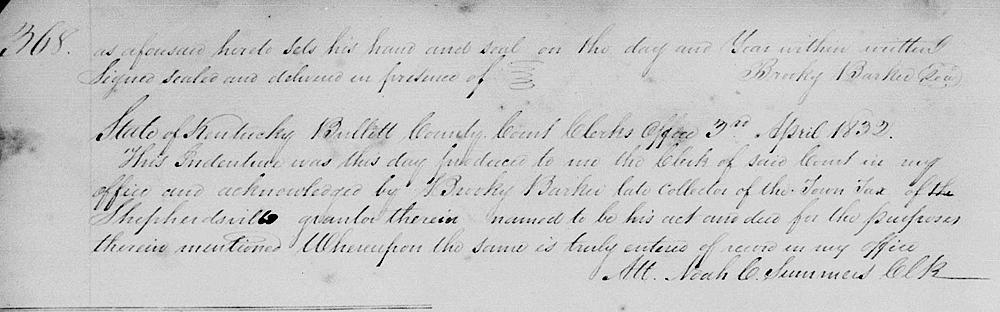 368. as afousaid hereto sets his hand and seal on the day and Year within written
Signed sealed and delivered in presence of Brooky Barker Seal
State of Kentucky Bullett County Court Clerks Office 3rd April 1832.
This Indenture was this day produced to me the Clerk of said Court in my
office and acknowledged by Brooky Barker late collector of the Town Tax of the
Shepherdsville grantor therein named to be his act and deed for the purposes
therein mentioned Whereupon the same is truly entered of record in my office
Att. Noah C. Summers Clk